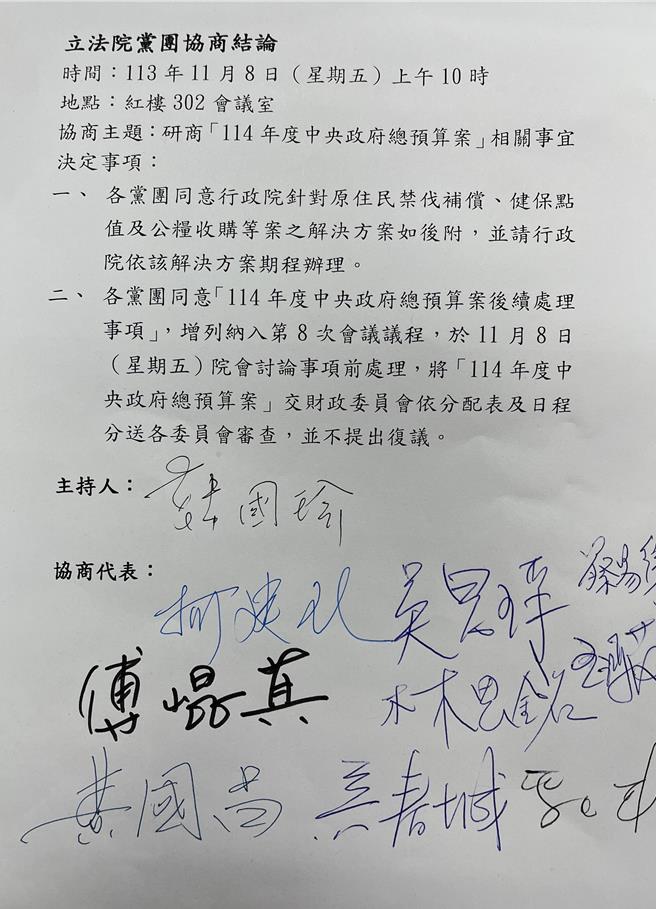 立法院黨團協商結論
時間：113年11月8日（星期五）上午10時
地點：紅樓302會議室
協商主題：研商「114年度中央政府總預算案」相關事宜
決定事項：
一、各黨團同意行政院針對原住民禁伐補償、健保點
值及公糧收購等案之解決方案如後附，並請行政
院依該解決方案期程辦理。
二、各黨團同意「114年度中央政府總預算案後續處理
事項」，增列納入第8次會議議程，於11月8日
（星期五）院會討論事項前處理，將「114年度中
央政府總預算案」交財政委員會依分配表及日程
分送各委員會審查，並不提出復議。
主持人：韓國瑜
協商代表：
柯建銘 吳思瑤 蔡易
傅崐萁 林思銘
黃國昌 吳春城